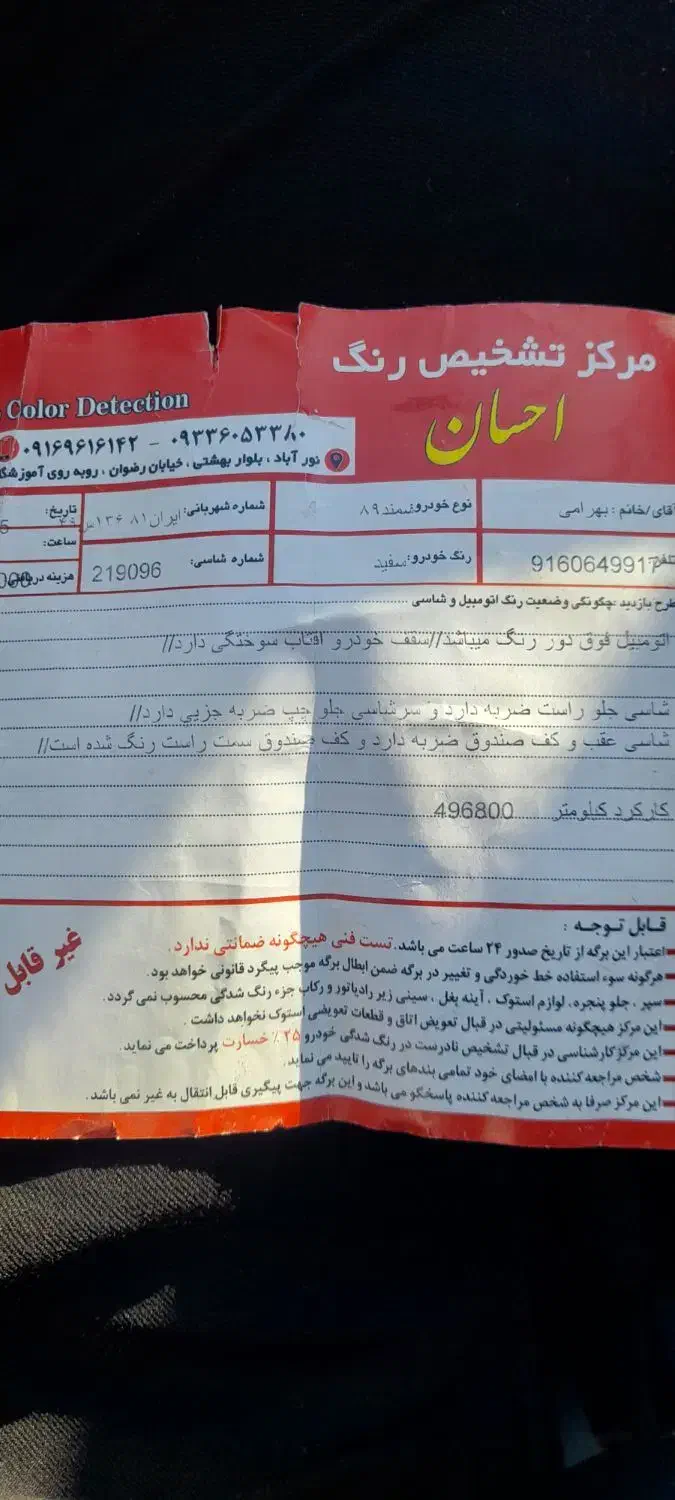 مرکز تشخیص رنگ
Color Detection
احسان
۰۹۱۶۹۶۱۶۱۴۲ - ۰۹۳۳۶۰۵۳۳۸۰
نور آباد ، بلوار بهشتی ، خیابان رضوان ، روبه روی آموزشگا
آقای/خانم : بهرامی
نوع خودرو: سمند ۸۹
شماره شهربانی: ایران ۸۱
تاریخ:
ساعت:
تلفن 9160649917
رنگ خودرو: سفید
شماره شاسی: 219096
هزینه دریافتی
طرح بازدید :چگونگی وضعیت رنگ اتومبیل و شاسی
اتومبیل فوق دور رنگ میباشد//سقف خودرو افتاب سوختگی دارد//
شاسی جلو راست ضربه دارد و سرشاسی جلو چپ ضربه جزیی دارد//
شاسی عقب و کف صندوق ضربه دارد و کف صندوق سمت راست رنگ شده است//
کارکرد کیلومتر 496800
قابل توجه :
اعتبار این برگه از تاریخ صدور ۲۴ ساعت می باشد. تست فنی هیچگونه ضمانتی ندارد.
هرگونه سوء استفاده خط خوردگی و تغییر در برگه ضمن ابطال برگه موجب پیگرد قانونی خواهد بود.
سپر ، جلو پنجره، لوازم استوک ، آینه بغل ، سینی زیر رادیاتور و رکاب جزء رنگ شدگی محسوب نمی گردد.
این مرکز هیچگونه مسئولیتی در قبال تعویض اتاق و قطعات تعویضی استوک نخواهد داشت .
این مرکز کارشناسی در قبال تشخیص نادرست در رنگ شدگی خودرو ۲۵٪ خسارت پرداخت می نماید.
شخص مراجعه کننده با امضای خود تمامی بندهای برگه را تایید می نماید.
این مرکز صرفا به شخص مراجعه کننده پاسخگو می باشد و این برگه جهت پیگیری قابل انتقال به غیر نمی باشد.
غیر قابل